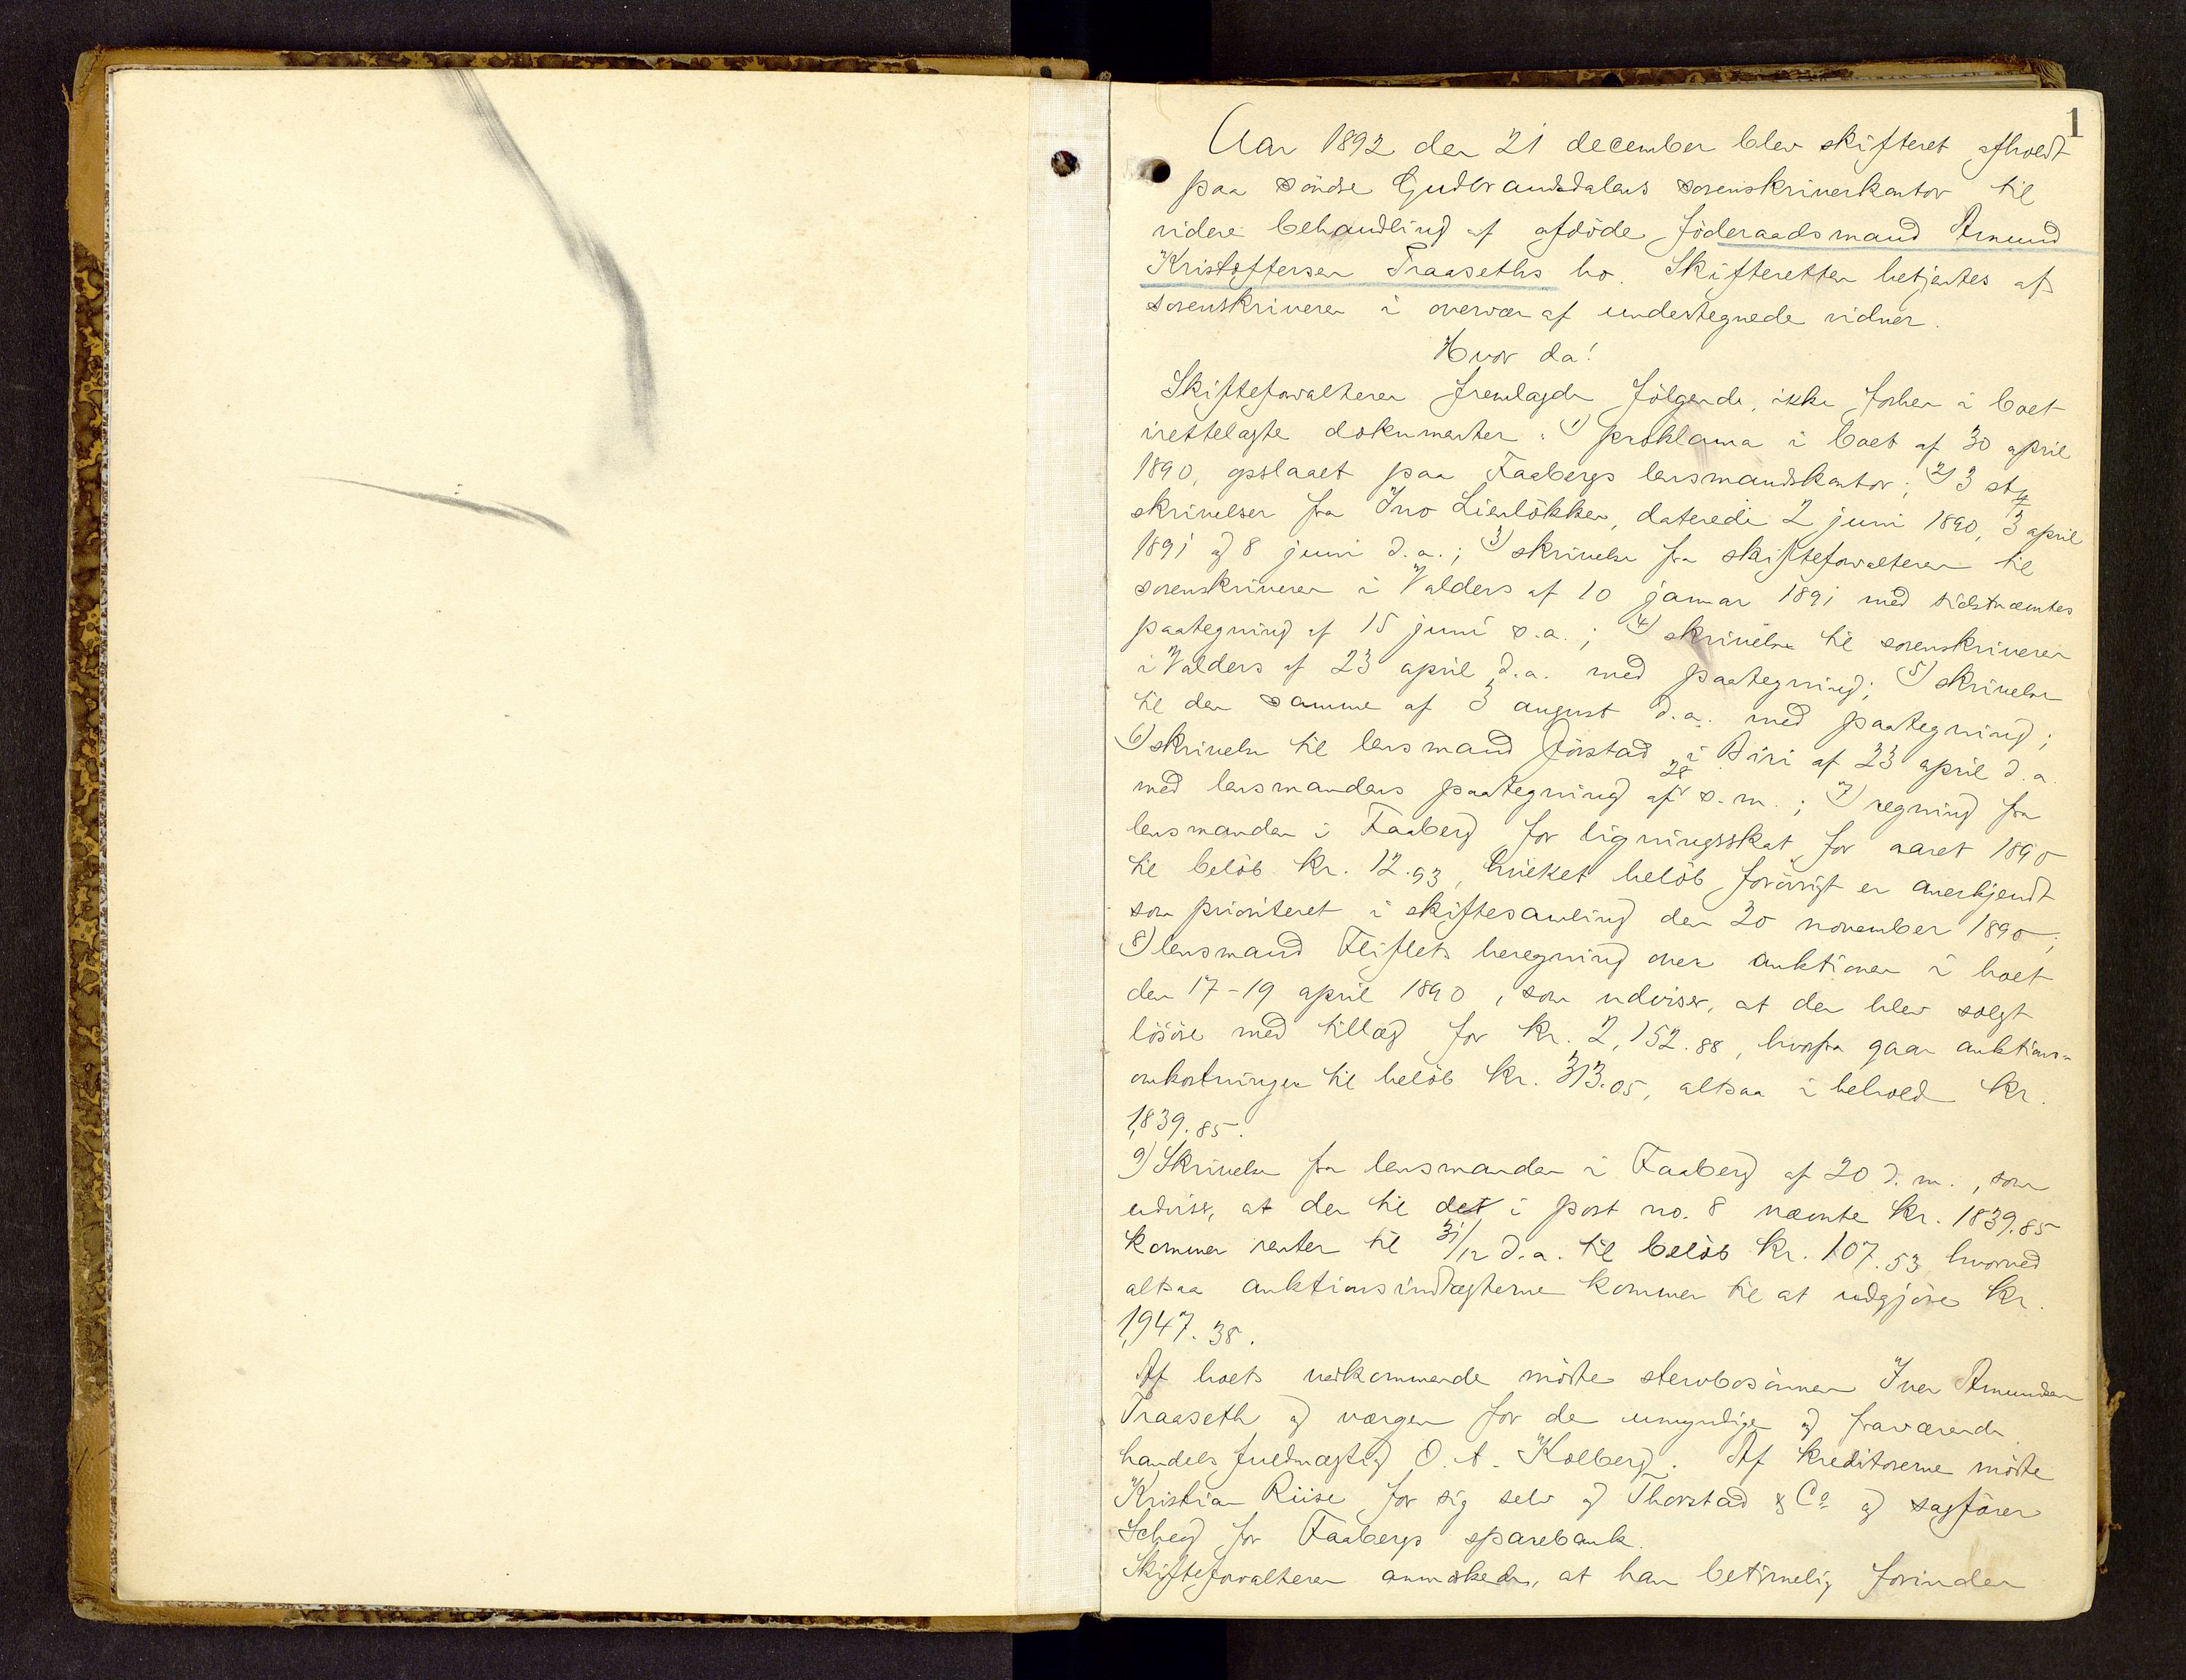 1
Aar 1892 den 21 december blev skifteret afholdt
paa söndre Gudbrandsdalens sorenskriverkontor til
videre behandling af afdöde föderaadsmand Amund
Kristoffersen Traaseths bo. Skifteretten betjentes af
sorenskriveren i overvær af undertegnede vidner.
Hvor da!
Skifteforvalteren fremlagde fölgende, ikke forhen i boet
irettelagte dokumenter: 1) proklama i boet af 30 april
1890, opslaaet paa Faabergs lensmandskontor; 2) 3 st
skrivelser fra Ivo Lienlökken, daterede 2 juni 1890, 3 april
1891 og 8 juni d.a.; 3) skrivelse fra skifteforvalteren til
sorenskriveren i Valders af 10 januar 1891 med sidstnævntes
paategning af 15 juni s.a.; 4) skrivelse til sorenskriveren
i Valders af 23 april d.a. med paategning; 5) skrivelse
til den samme af 3 august d.a. med paategning;
6) skrivelse til lensmand Jörstad i Biri af 23 april d.a.
med lensmandens paategning af 28 s.m.; 7) regning fra
lensmanden i Faaberg for ligningsskat for aaret 1890
til belöb kr. 12.93, hvilket belöb forövrigt er anerkjendt
som prioriteret i skiftesamling den 20 november 1890;
8) lensmand Fliflets beregning over auktionen i boet
den 17-19 april 1890, som udviser, at der blev solgt
lösöre med tillæg for kr. 2,152.88, hvorfra gaar auktions-
omkostninger til belöb kr. 313.05, altsaa i behold kr.
1,839.85.
9) Skrivelse fra lensmanden i Faaberg af 20 d.m., som
udviser, at der til det i post no. 8 nævnte kr. 1839.85
kommer renter til 31/12 d.a. til belöb kr. 107.53 hvorved
altsaa auktionsindtægterne kommer til at udgjöre kr.
1,947.38.
Af boets vedkommende mödte stervbosönnen Iver Amundsen
Traaseth og værgen for de umyndige og fraværende
handelsfuldmægtig O. A. Kolberg. Af kreditorerne mödte
Kristian Riise for sig selv og Thorstad & Co og sagförer
for Faabergs sparebank.
Skifteforvalteren anmærkede, at han betimelig forinden